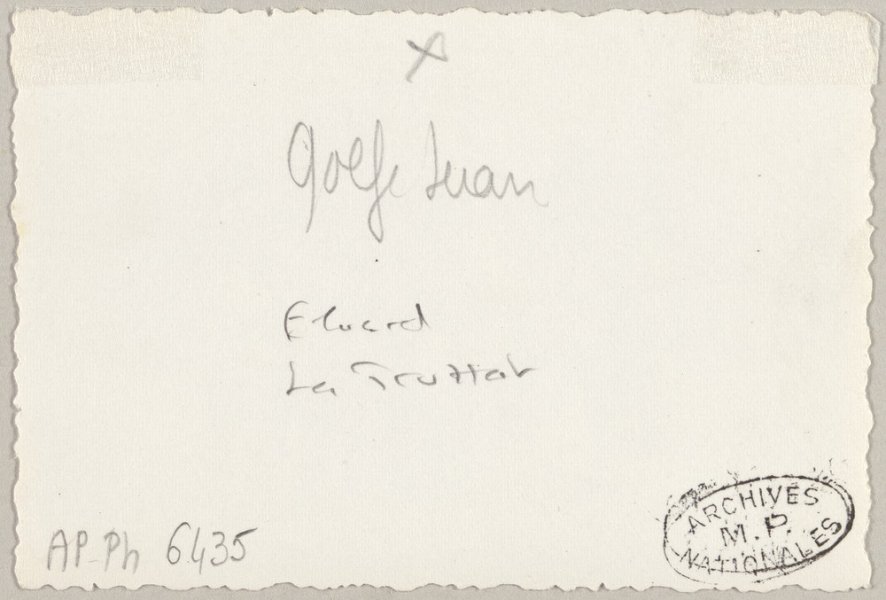 x
Golfe Juan
Eluard
La Truttat
AP-Ph 6435
ARCHIVES
M.P.
NATIONALES